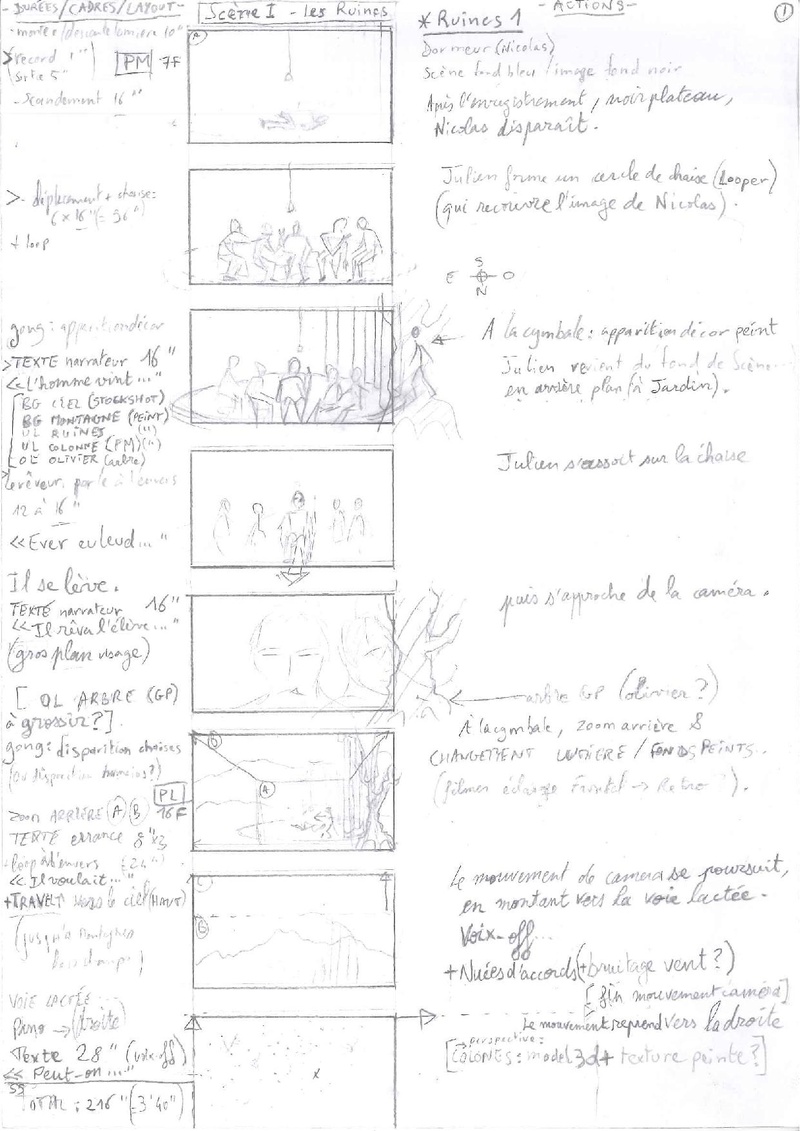 - DURÉES/CADRES/LAYOUT -
- monter/descente lumière 10"
> record 1")
(sortie 5")
PM 7F
- Scandement 16"
>- déplacement + chaise:
6 x 16" (= 96")
+ loop
gong: apparition décor
>TEXTE narrateur 16"
<< L'homme vint..."
BG CIEL (STOCKSHOT)
BG MONTAGNE (PEINT)
UL RUINES (")
UL COLONNE (PM)(")
OL OLIVIER (arbre)
> Le rêveur, parle à l'envers
12 à 16"
<< Ever eu leud..."
Il se lève.
TEXTE narrateur 16"
<< Il rêva l'élève..."
(gros plan visage)
[ OL ARBRE (GP)
à grossir?].
gong: disparition chaises
(ou disparition humains?)
PL
zoom ARRIÈRE (A) (B) 16F
TEXTE errance 8"x3
+ loop à l'envers (24")
<< Il voulait..."
+TRAVELT vers le ciel (HAUT)
(jusqu'à montagnes
VOIE LACTÉE
Pano -> (droite)
Texte 28" (voix-off)
<< Peut-on..."
55
TOTAL: 216" (=3'40")
Scène I - les Ruines
A
B
A
C
B
x
- ACTIONS -
1
* Ruines 1
Dormeur (Nicolas)
Scène fond bleu / image fond noir
Après l'enregistrement, noir plateau,
Nicolas disparaît.
Julien forme un cercle de chaise (Looper)
(qui recouvre l'image de Nicolas).
S
E O
N
A la cymbale: apparition décor peint
Julien revient du fond de Scène...
en arrière plan (à Jardin).
Julien s'assoit sur la chaise
puis s'approche de la caméra.
arbre GP (olivier?)
À la cymbale, zoom arrière &
CHANGEMENT LUMIÈRE / FONDS PEINTS..
(filmer éclairage Frontal -> Retro?).
Le mouvement de camera se poursuit,
en montant vers la voie lactée.
Voix-off...
+ Nuées d'accords (+ bruitage vent?)
[fin mouvement caméra]
Le mouvement reprend vers la droite
-> perspective:
[COLONES: model 3d + texture peinte?]